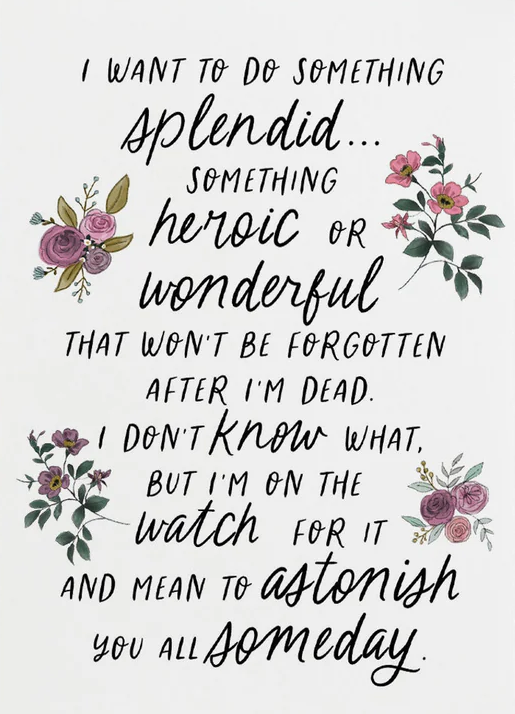 I WANT TO DO SOMETHING
splendid...
SOMETHING
heroic OR
wonderful
THAT WON'T BE FORGOTTEN
AFTER I'M DEAD.
I DON'T know WHAT,
BUT I'M ON THE
watch FOR IT
AND MEAN TO astonish
YOU ALL someday.